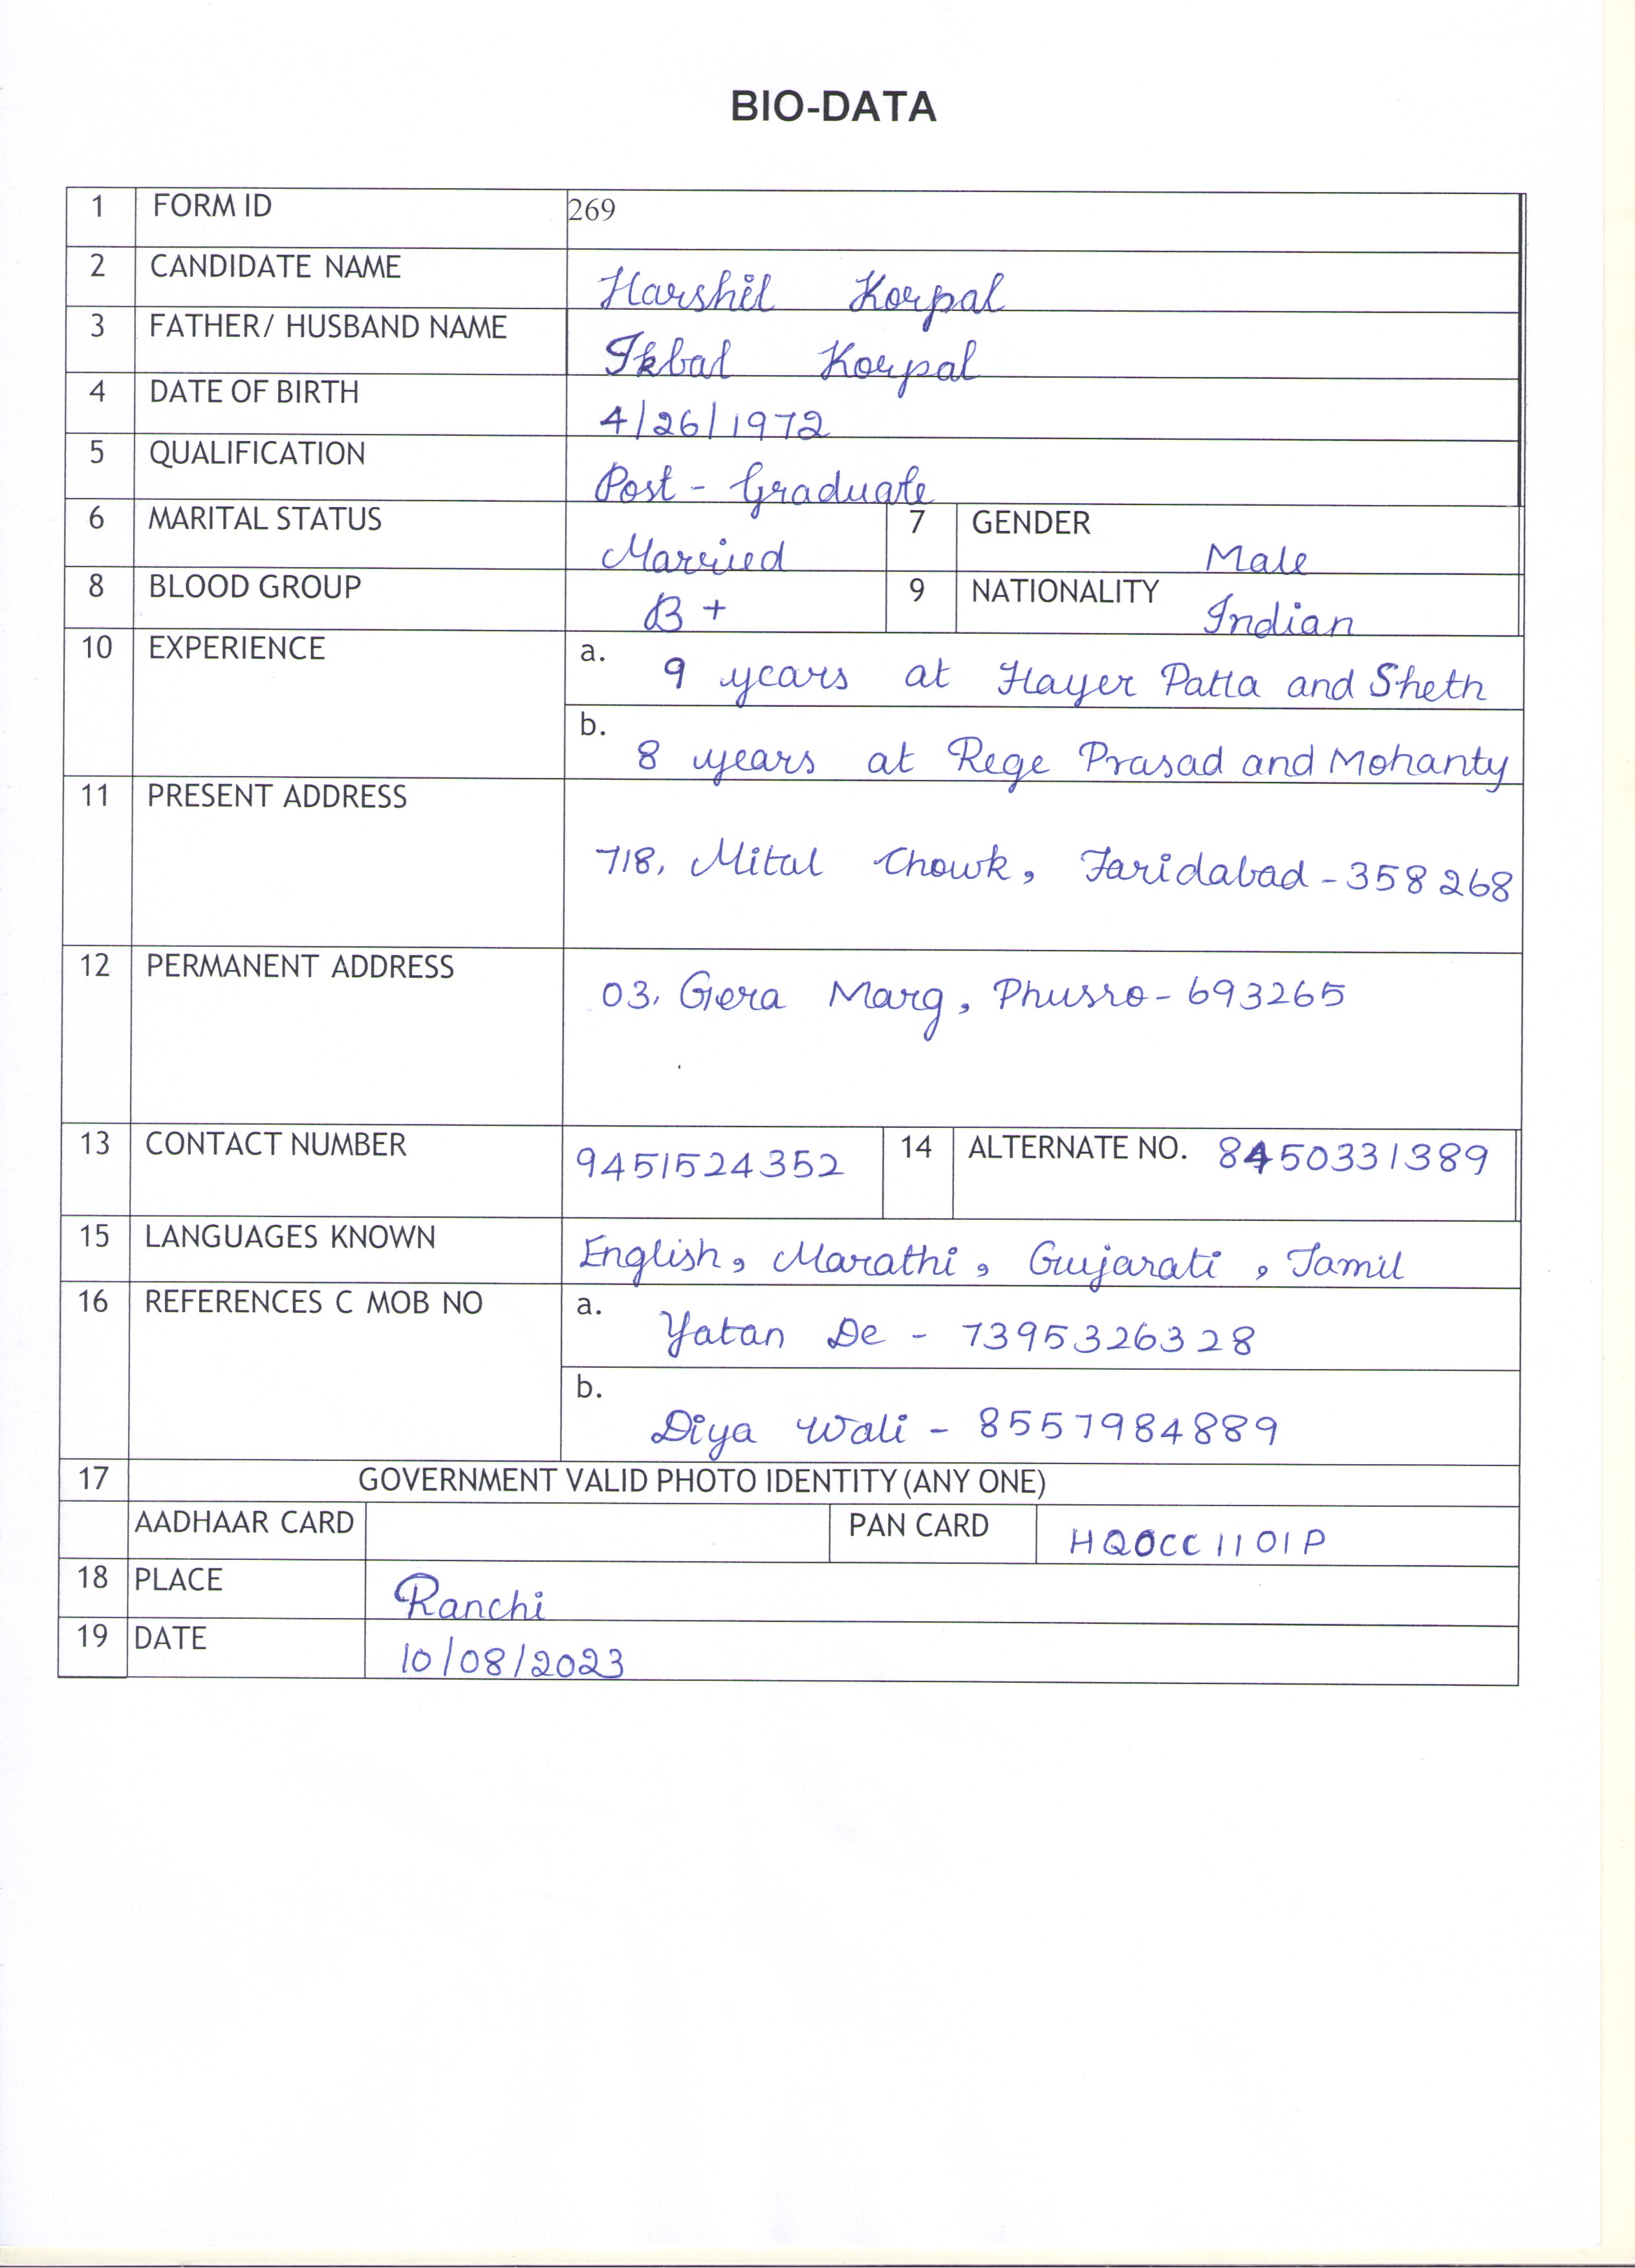 BIO-DATA
1 FORM ID 269
2 CANDIDATE NAME Harshil Korpal
3 FATHER/ HUSBAND NAME Ikbal Korpal
4 DATE OF BIRTH 4/26/1972
5 QUALIFICATION Post - Graduate
6 MARITAL STATUS Married 7 GENDER Male
8 BLOOD GROUP B + 9 NATIONALITY Indian
10 EXPERIENCE a. 9 years at Hayer Patla and Sheth
b. 8 years at Rege Prasad and Mohanty
11 PRESENT ADDRESS 718, Mital Chowk, Faridabad - 358268
12 PERMANENT ADDRESS 03, Gera Marg, Phusro - 693265
13 CONTACT NUMBER 9451524352 14 ALTERNATE NO. 8450331389
15 LANGUAGES KNOWN English, Marathi, Gujarati, Tamil
16 REFERENCES C MOB NO a. Yatan De - 7395326328
b. Diya Wali - 8557984889
17 GOVERNMENT VALID PHOTO IDENTITY (ANY ONE)
AADHAAR CARD PAN CARD HQOCC1101P
18 PLACE Ranchi
19 DATE 10/08/2023